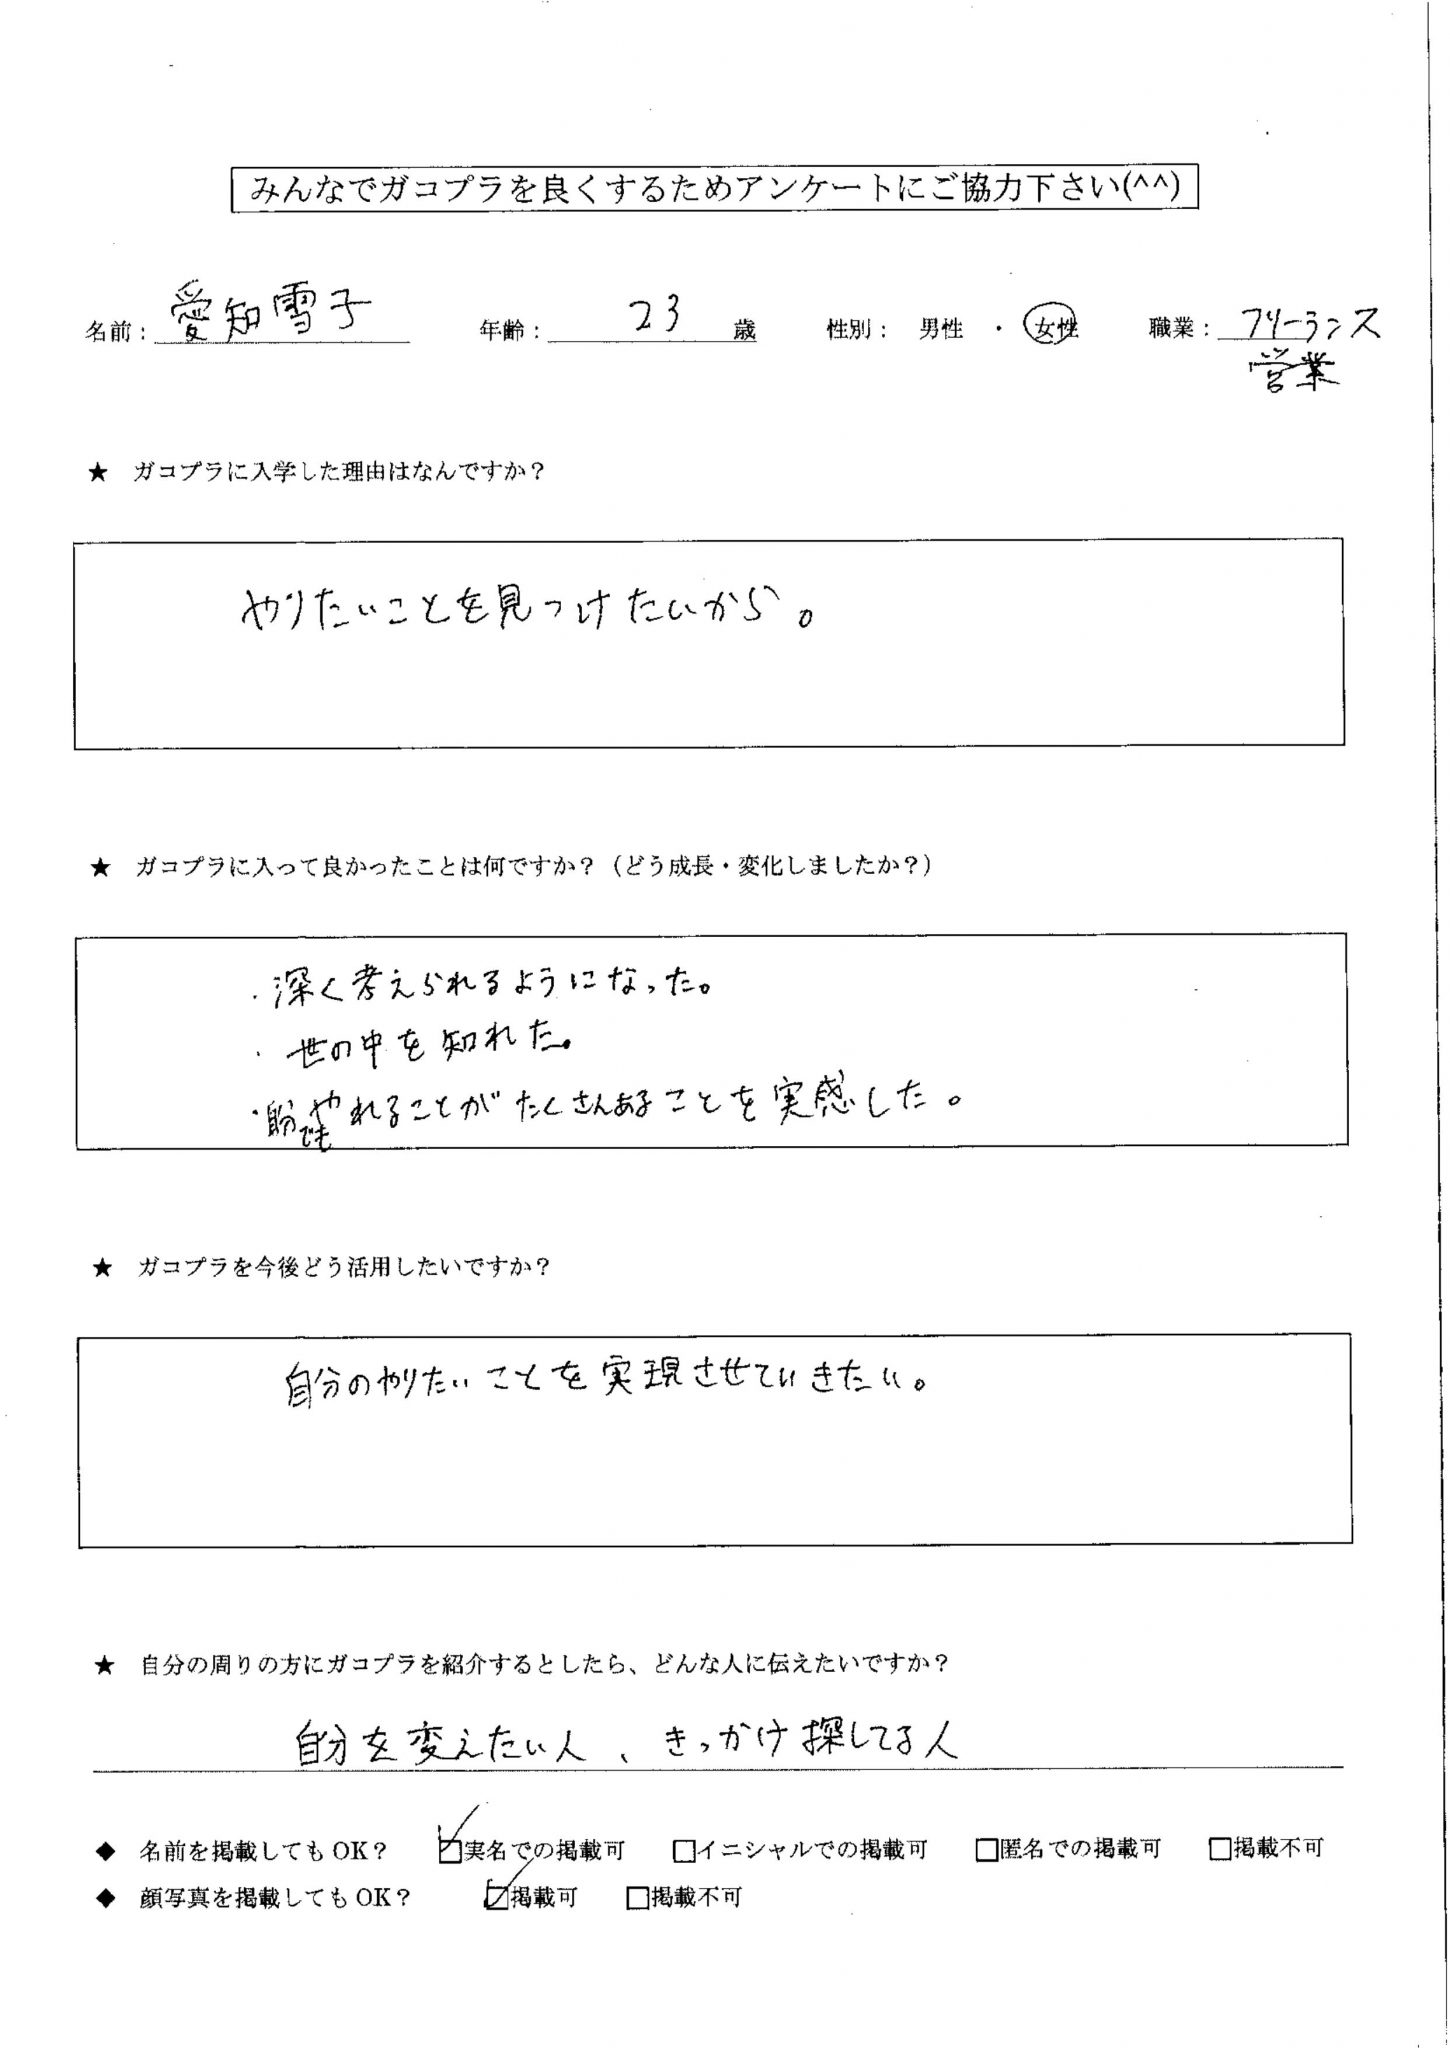 みんなでガコプラを良くするためアンケートにご協力下さい(^^)
名前： 愛知雪子 年齢： 23 歳 性別： 男性 ・ 女性 職業： フリーランス
営業
★ ガコプラに入学した理由はなんですか？
やりたいことを見つけたいから。
★ ガコプラに入って良かったことは何ですか？（どう成長・変化しましたか？）
・深く考えられるようになった。
・世の中を知れた。
・自分でもやれることがたくさんあることを実感した。
★ ガコプラを今後どう活用したいですか？
自分のやりたいことを実現させていきたい。
★ 自分の周りの方にガコプラを紹介するとしたら、どんな人に伝えたいですか？
自分を変えたい人、きっかけ探してる人
◆ 名前を掲載してもOK？ ☑実名での掲載可 □イニシャルでの掲載可 □匿名での掲載可 □掲載不可
◆ 顔写真を掲載してもOK？ ☑掲載可 □掲載不可